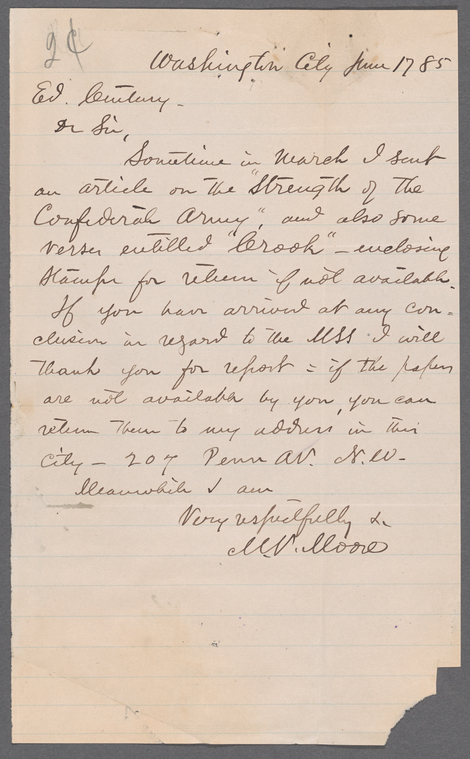 2¢
Washington City June 17 85
Ed. Century_
Dr Sir,
Sometime in March I sent
an article on the "Strength of the
Confederate Army", and also some
verses entitled "Crook" _ enclosing
stamps for return if not available.
If you have arrived at any con-
clusion in regard to the MSS I will
thank you for report = if the papers
are not available by you, you can
return them to my address in this
City _ 207 Penn AV. N.W.
Meanwhile I am
Very respectfully &.
M.V. Moore